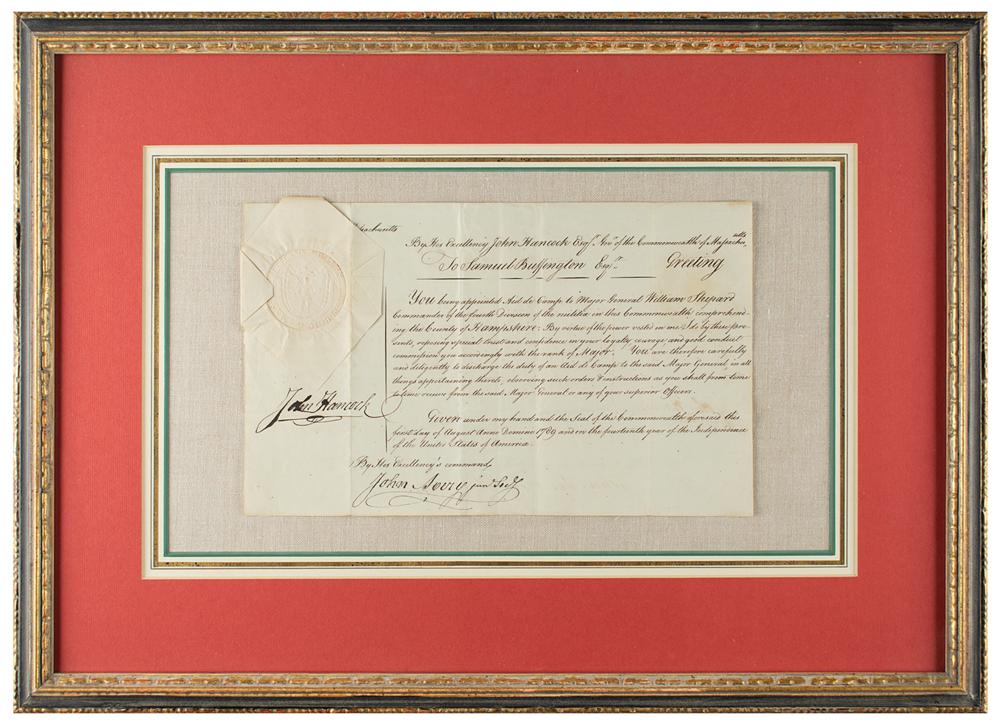 sachusetts
By His Excellency John Hancock Esqr. Govr. of the Commonwealth of Massachusetts
To Samuel Buffington Esqr. Greeting
You being appointed Aid de Camp to Major General William Shepard
Commander of the fourth Division of the militia in this Commonwealth comprehend-
ing the County of Hampshire. By virtue of the power vested in me I do by these pre-
sents, reposing special trust and confidence in your loyalty courage and good conduct
commission you accordingly with the rank of Major. You are therefore carefully
and diligently to discharge the duty of an Aid de Camp to the said Major General, in all
things appertaining thereto, observing such orders & instructions as you shall from time
to time receive from the said Major General or any of your superior Officers.
Given under my hand and the Seal of the Commonwealth aforesaid this
first day of August Anno Domini 1789 and in the fourteenth year of the Independence
of the United States of America.
John Hancock
By His Excellency's command,
John Avery junr. Secy